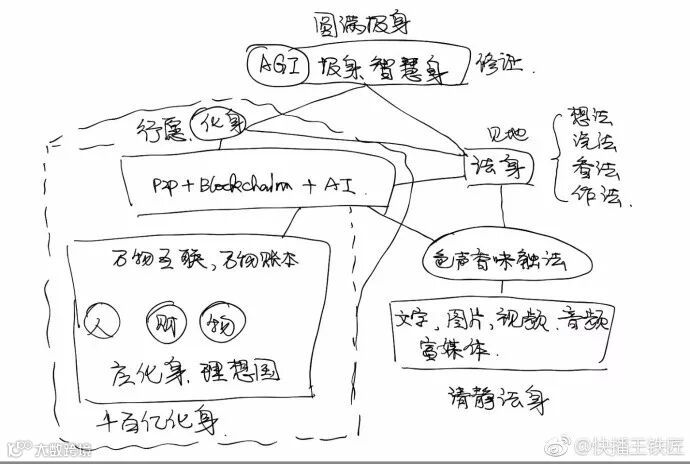 圆满报身
AGI 报身.智慧身 修证.
行愿. 化身
见地
法身
想法
说法
看法
作法.
P2p + Blockchain + AI.
万物互联,万物账本
人 财 物
应化身.理想国
千百亿化身.
色声香味触法
文字,图片,视频.音频
富媒体.
清静法身
大数跨境
@快播王铁匠